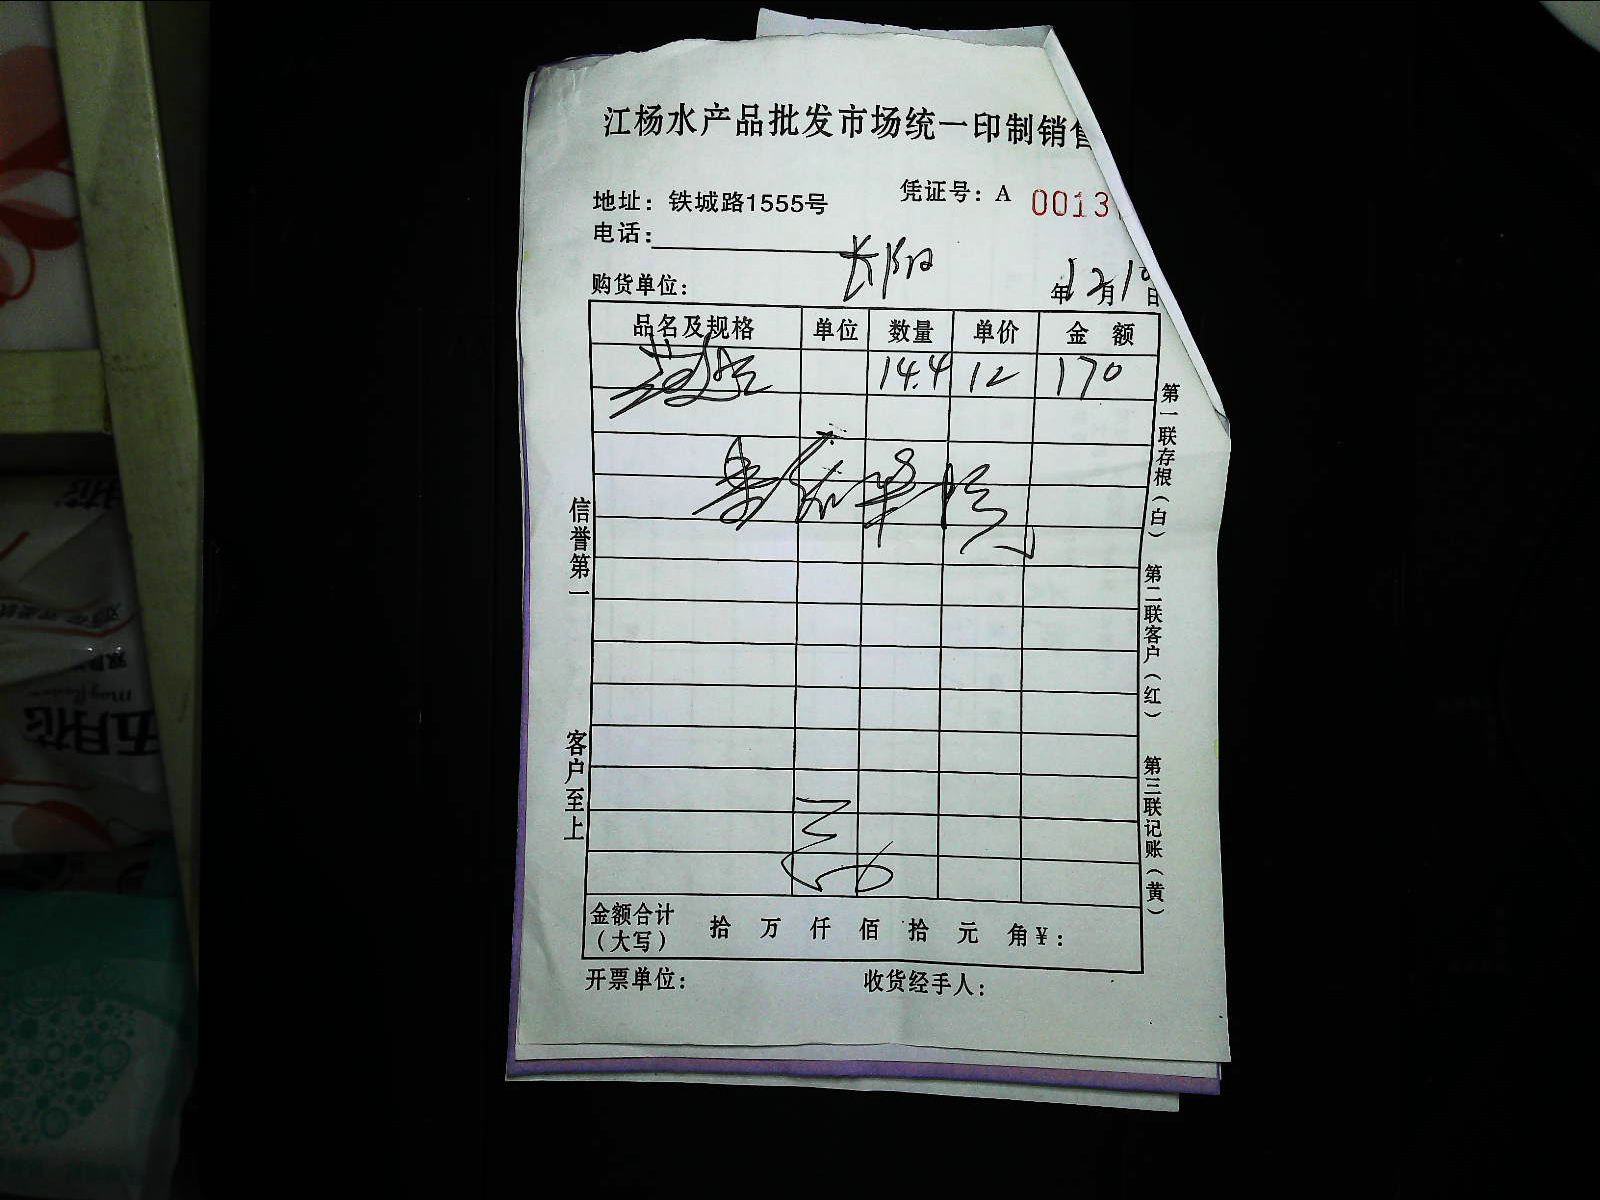 江杨水产品批发市场统一印制销售
地址：铁城路1555号
凭证号：A 0013
电话：
长阳
购货单位：
年12月10日
品名及规格 单位 数量 单价 金 额
14.4 12 170
信誉第一
客户至上
第一联存根（白）
第二联客户（红）
第三联记账（黄）
金额合计（大写） 拾 万 仟 佰 拾 元 角￥：
开票单位：
收货经手人：
五月花